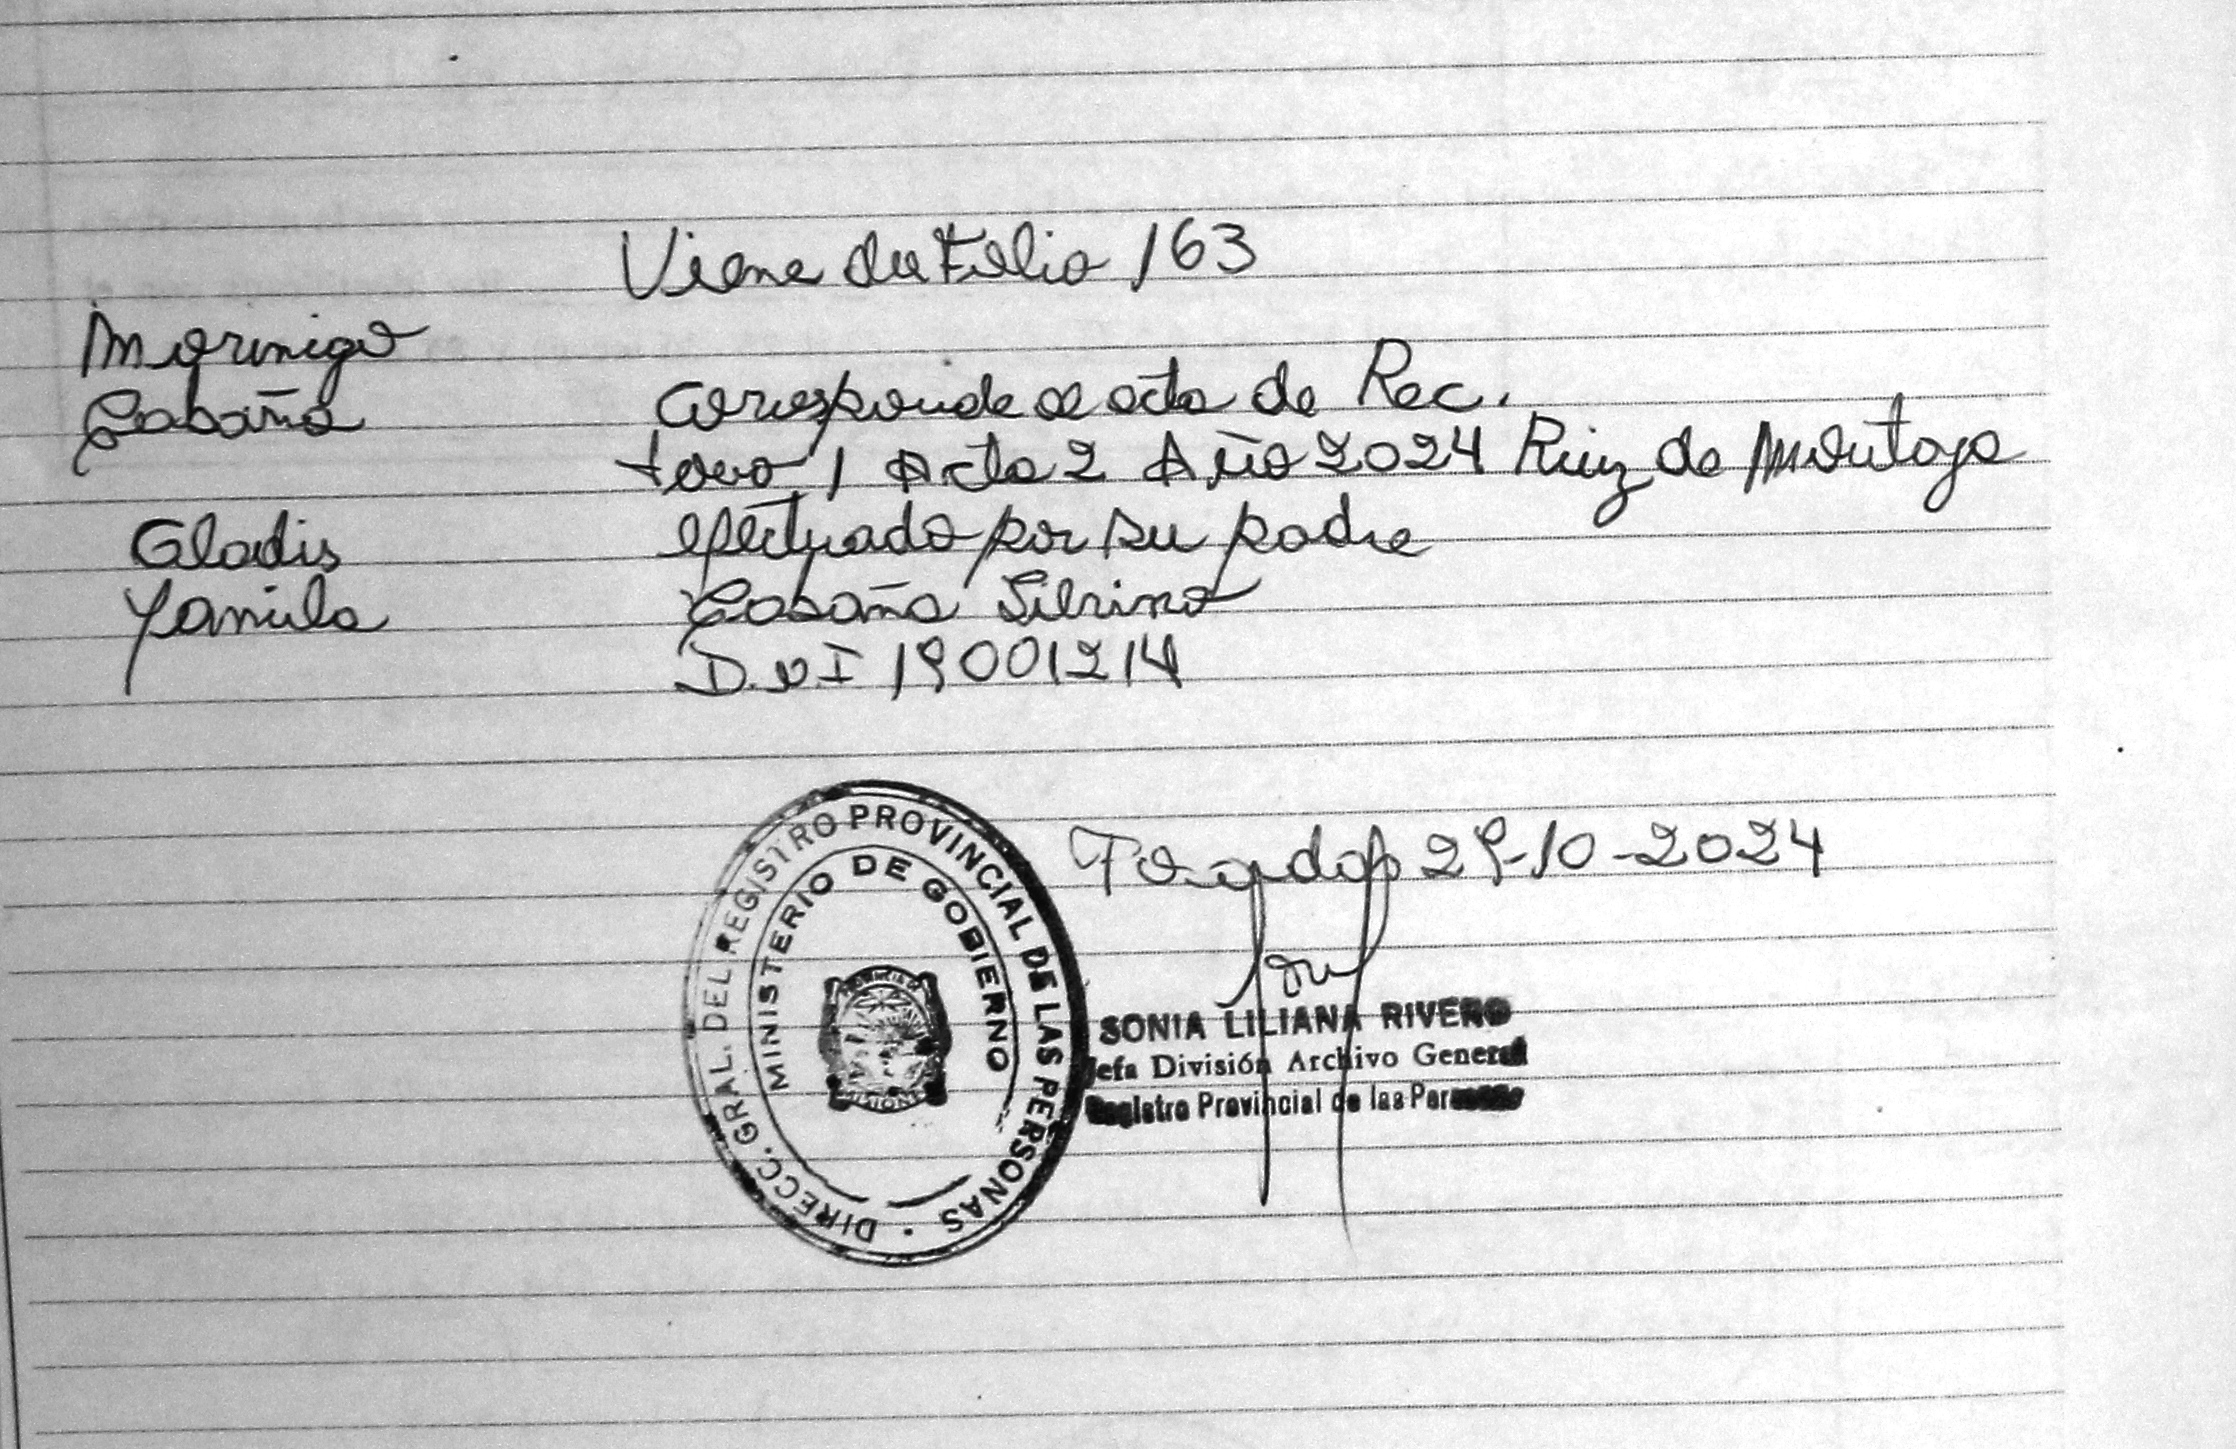 Viene del Folio 163
Morinigo
Cabaña
Corresponde al acta de Rec.
tomo 1 Acta 2 Año 2024 Ruiz de Montoya
Gladis
efectuado por su padre
Yamila
Cabaña Silvino
D.N.I 19001214
DIRECC. GRAL. DEL REGISTRO PROVINCIAL DE LAS PERSONAS
MINISTERIO DE GOBIERNO
MISIONES
29-10-2024
SONIA LILIANA RIVERO
Jefa División Archivo General
Registro Provincial de las Personas